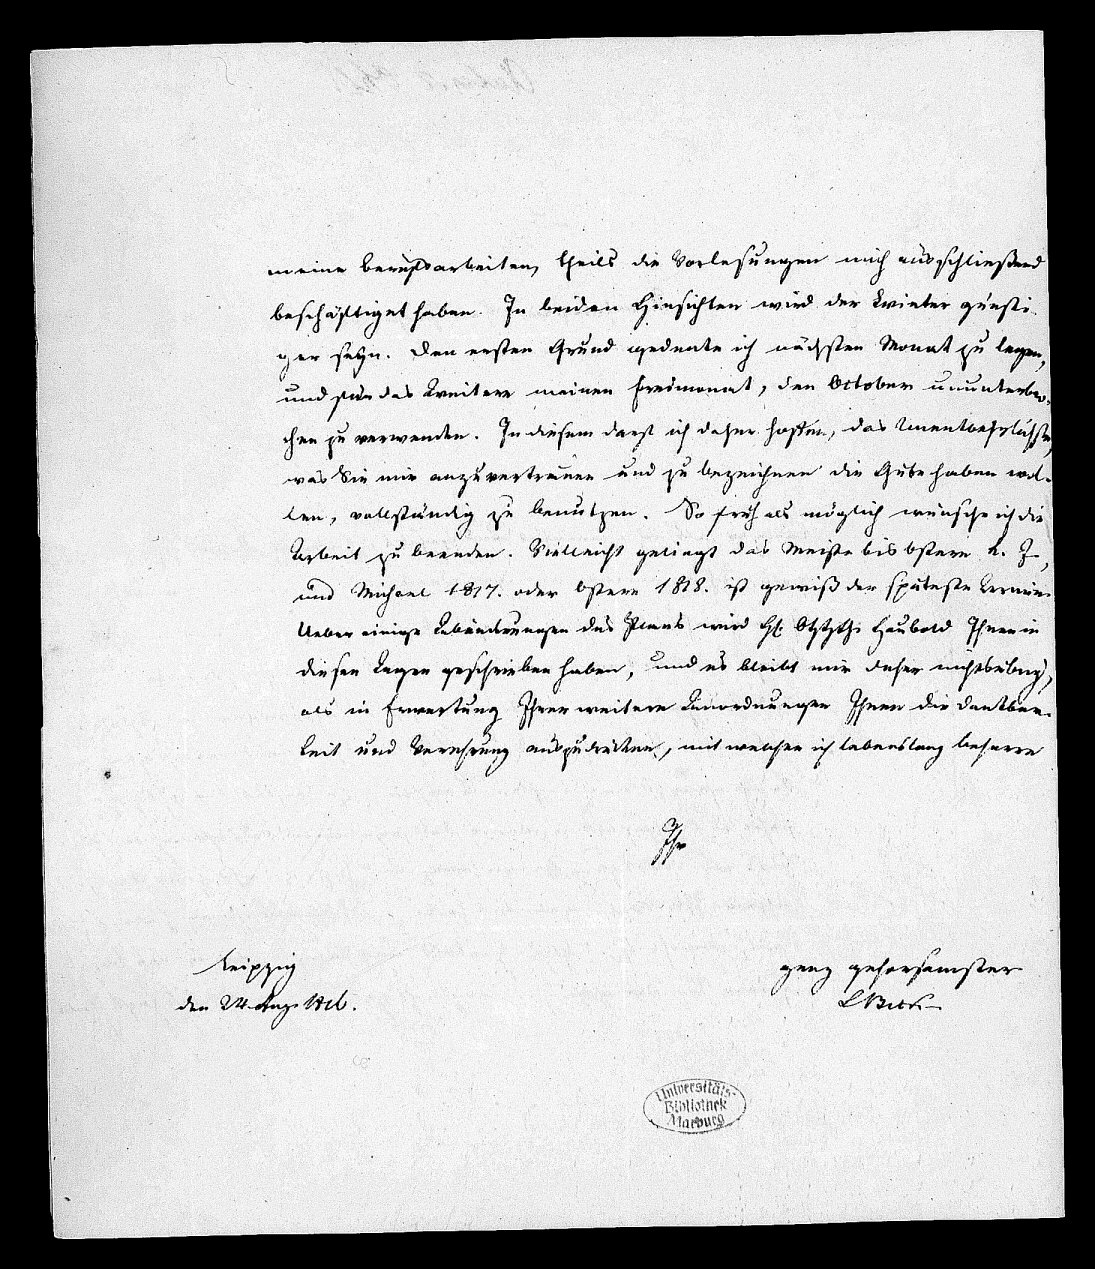 meine berufsarbeiten, theils die Vorlesungen mich ausschließend
beschäftiget haben. In beiden Hinsichten wird der Winter günsti-
ger seyn. Den ersten Grund gedenke ich nächsten Monat zu legen,
und für das Weitere meinen freimonat, den October ununterbro-
chen zu verwenden. In diesem darf ich daher hoffen, das Unentbehrlichste,
was Sie mir anzuvertrauen und zu bezeichnen die Güte haben wol-
len, vollständig zu benutzen. So früh als möglich wünsche ich die
Arbeit zu beenden. Vielleicht gelingt das Meiste bis Ostern k. J.,
und Michael 1817. oder Ostern 1818. ist gewiß der späteste Termin.
Ueber einige Abänderungen des Plans wird Haubold Ihnen in
diesen Tagen geschrieben haben, und es bleibt mir daher nichts übrig,
als in Erwartung Ihrer weitern Anordnungen Ihnen die Dankbar-
keit und Verehrung auszudrücken, mit welcher ich lebenslang beharre
Ihr
Leipzig
ganz gehorsamster
den 24 Aug. 1816.
Universitäts-
Bibliothek
Marburg